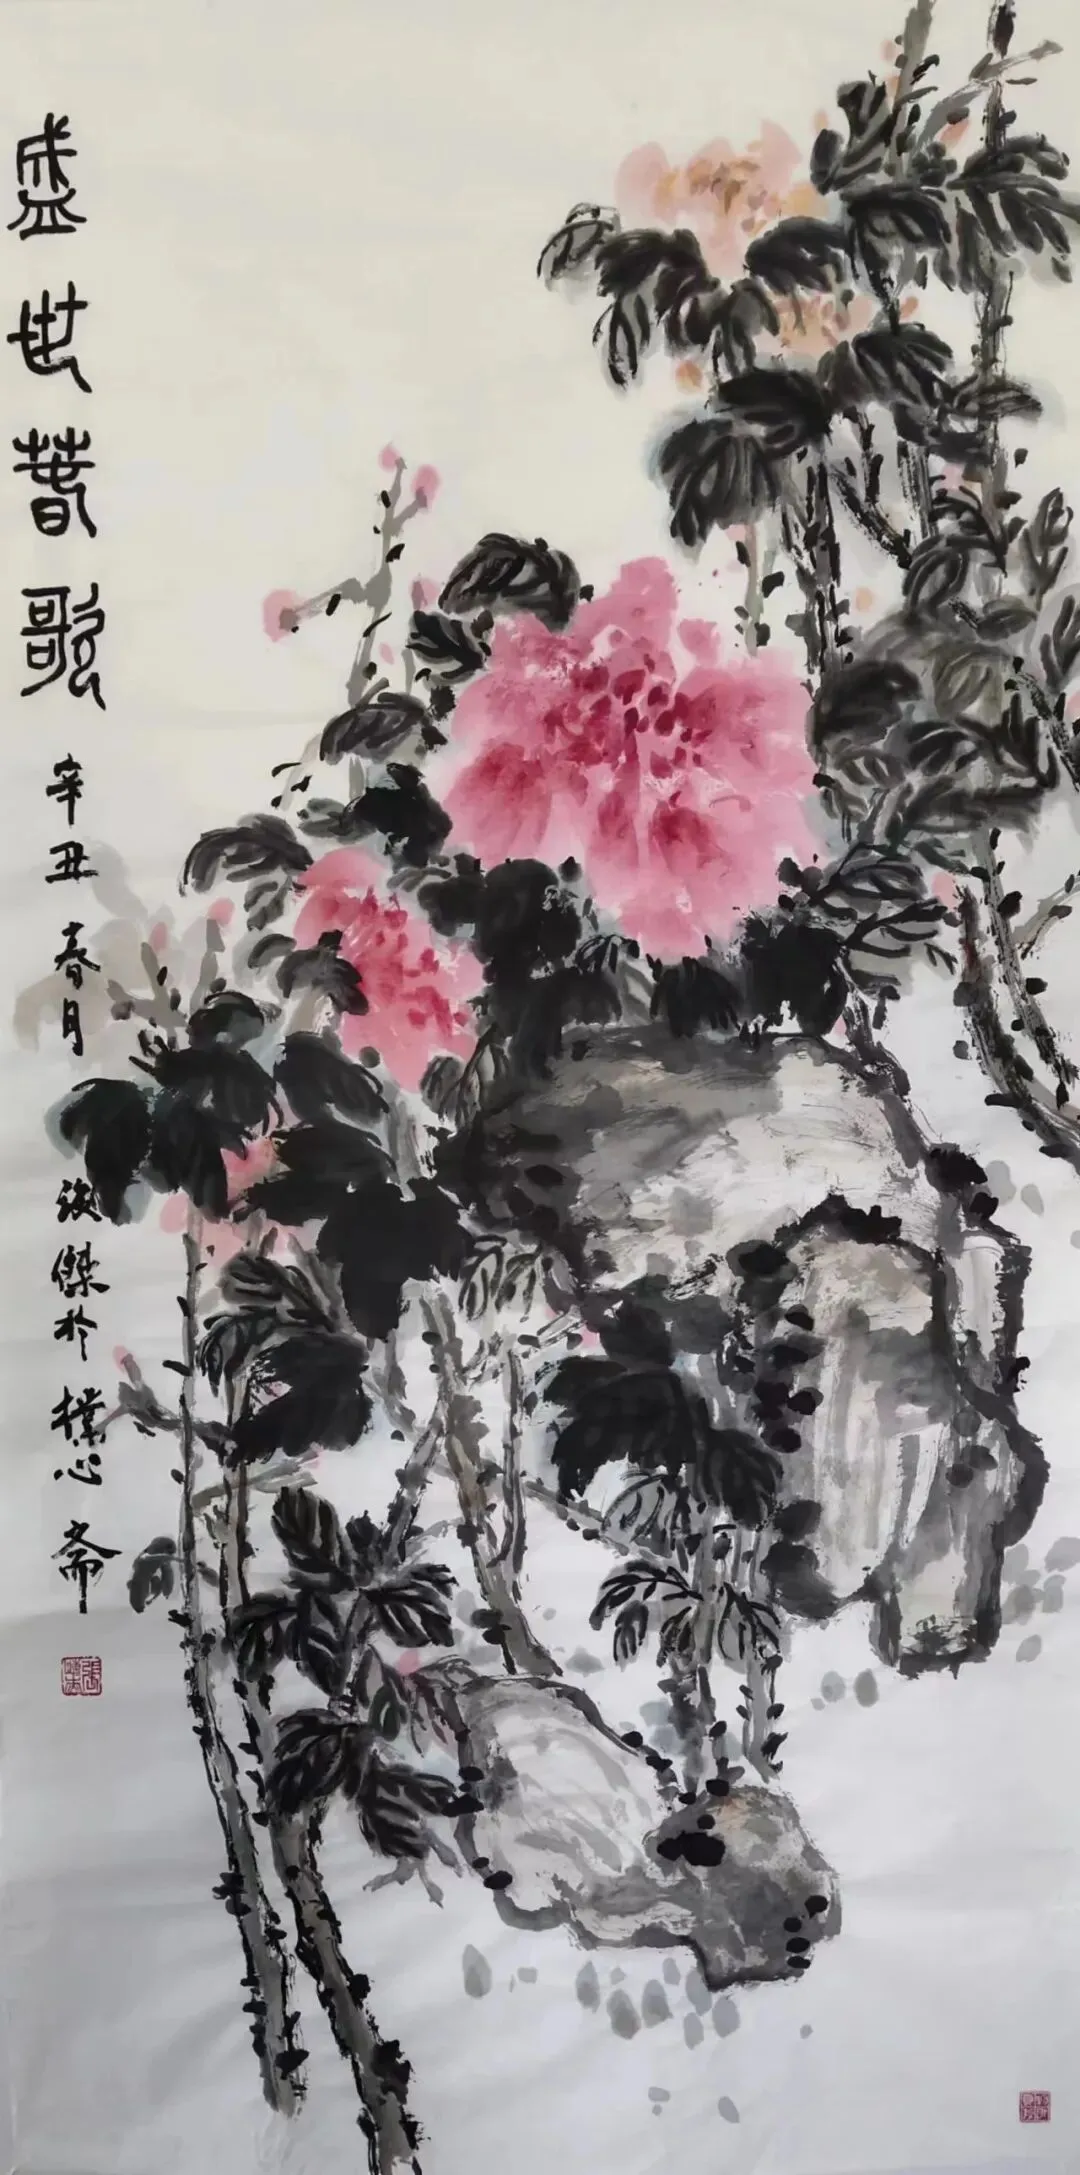 盛世春歌 辛丑春月 汉傑於樸心斋